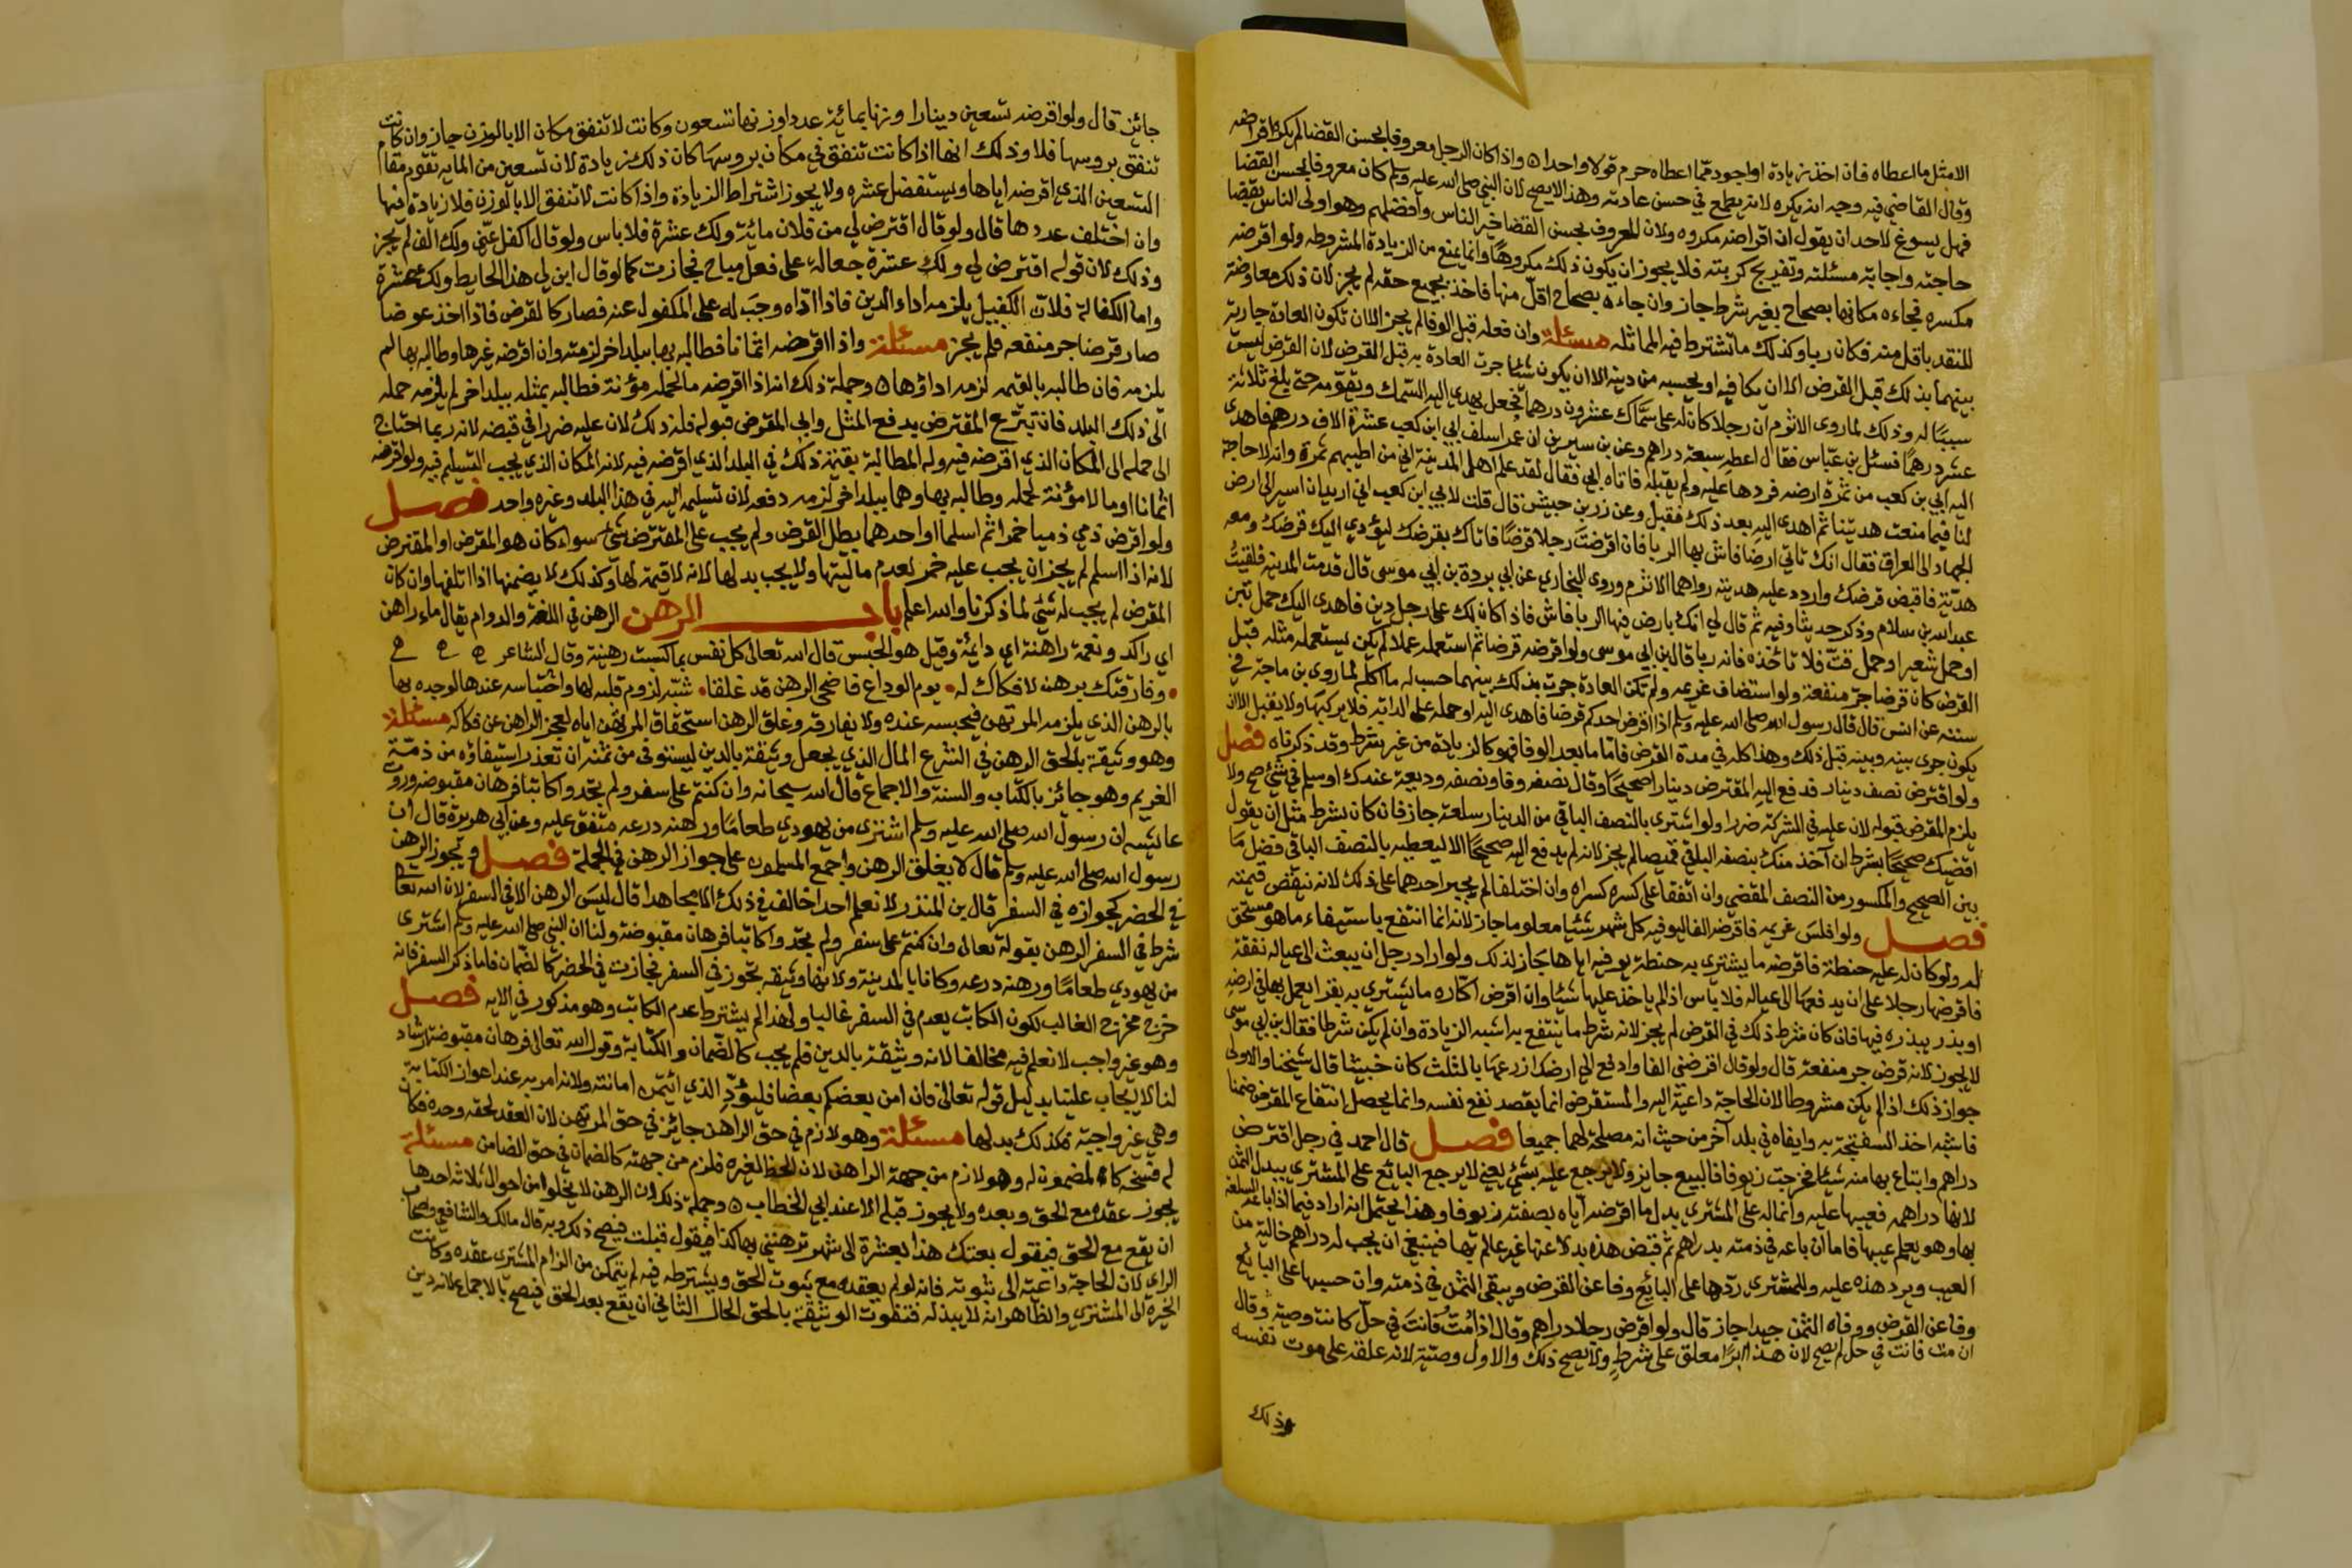 الا مثل ما اعطاه فان اخذ زيادة او اجود مما اعطاه حرم قولا واحدا ٥ واذا كان الرجل معروفا بحسن القضا لم يكره اقراضه
وقال القاضي فيه وجه انه يكره لانه يطمع في حسن عادته وهذا لا يصح لان النبي صلى الله عليه وسلم كان معروفا بحسن القضا
فهل يسوغ لاحد ان يقول ان اقراضه مكروه ولان المعروف بحسن القضا خير الناس وافضلهم وهو اولى الناس بقضا
حاجته واجابة مسئلته وتفريج كربته فلا يجوز ان يكون ذلك مكروها وانما يمنع من الزيادة المشروطه ولو اقرضه
مكسره فجاءه مكانها بصحاح بغير شرط جاز وان جاءه بصحاح اقل منها فاخذ بجميع حقه لم يجز لان ذلك معاوضة
للنقد باقل منه فكان ربا وكذلك ما تشترط فيه المماثله مسئلة وان فعله قبل الوفا لم يجز الا ان تكون العادة جارية
بينهما بذلك قبل القرض الا ان يكافيه او يحسبه من دينه الا ان يكون شئا جرت العادة به قبل القرض لان القرض ليس
سببا له وذلك لما روى الاثرم ان رجلا كان له على سماك عشرون درهما فجعل يهدي اليه السمك ويقومه حتى بلغ ثلاثة
عشر درهما فسئل بن عباس فقال اعطه سبعة دراهم وعن بن سيرين ان عمر اسلف ابي ابن كعب عشرة الاف درهم فاهدى
اليه ابي بن كعب من ثمرة ارضه فردها عليه ولم يقبله فاتاه ابي فقال لقد علم اهل المدينة اني من اطيبهم ثمرة وانه لا حاجة
لنا فيما منعت هديتنا ثم اهدى اليه بعد ذلك فقبل وعن زر بن حبيش قال قلت لابي ابن كعب اني اريد ان اسير الى ارض
الجهاد الى العراق فقال انك تاتي ارضا فاش بها الربا فان اقرضت رجلا قرضا فاتاك بقرضك ليؤدي اليك قرضك ومعه
هدية فاقبض قرضك واردد عليه هديته رواهما الاثرم وروى البخاري عن ابي بردة بن ابي موسى قال قدمت المدينه فلقيت
عبد الله بن سلام وذكر حديثا وفيه ثم قال لي انك بارض فيها الربا فاش فاذا كان لك على رجل دين فاهدى اليك حمل تبن
او حمل شعير او حمل قت فلا تأخذه فانه ربا قال بن ابي موسى ولو اقرضه قرضا ثم استعمله عملا لم يكن يستعمله مثله قبل
القرض كان قرضا جر منفعة ولو استضاف غريمه ولم تكن العادة جرت بذلك بينهما حسب له ما اكله لما روى بن ماجة في
سننه عن انس قال قال رسول الله صلى الله عليه وسلم اذا اقرض احدكم قرضا فاهدى اليه او حمله على الدابه فلا يركبها ولا يقبل الا ان
يكون جرى بينه وبينه قبل ذلك وهذا كله في مدة القرض فاما ما بعد الوفا فهو كالزيادة من غير شرط وقد ذكرناه فصل
ولو اقترض نصف دينار فدفع اليه المقترض دينارا صحيحا وقال نصفه وفا ونصفه وديعة عندك او سلم في شئ صح ولا
يلزم المقرض قبوله لان عليه في الشركة ضررا ولو اشترى بالنصف الباقي من الدينار سلعة جاز فان كان بشرط مثل ان يقول
اقضيك صحيحا بشرط ان آخذ منك بنصفه الباقي قميصا لم يجز لانه لم يدفع اليه صحيحا الا ليعطيه بالنصف الباقي فضل ما
بين الصحيح والمكسور من النصف المقضي وان اتفقا على كسره كسراه وان اختلفا لم يجبر احدهما على ذلك لانه ينقض قيمته
فصل ولو افلس غريمه فاقرضه الفا ليوفيه كل شهر شئا معلوما جاز لانه انما انتفع باستيفاء ما هو مستحق
له ولو كان له عليه حنطة فاقرضه ما يشتري به حنطة يوفيه اياها جاز لذلك ولو اراد رجل ان يبعث الى عياله نفقة
فاقرضها رجلا على ان يدفعها الى عياله فلا باس اذا لم ياخذ عليها شئا وان اقرض اكاره ما يشتري به بقرا يعمل بها في ارضه
او بذر يبذره فيها فان كان شرط ذلك في القرض لم يجز لانه شرط ما ينتفع به اشبه الزيادة وان لم يكن شرطا فقال بن ابي موسى
لا يجوز لانه قرض جر منفعة قال ولو قال اقرضني الفا وادفع الي ارضك ازرعها بالثلث كان خبيثا قال شيخنا والاولى
جواز ذلك اذا لم يكن مشروطا لان الحاجة داعية اليه والمستقرض انما يقصد نفع نفسه وانما يحصل انتفاع المقرض ضمنا
فاشبه اخذ السفتجة به وايفاه في بلد آخر من حيث انه مصلحة لهما جميعا فصل قال احمد في رجل اقترض
دراهم وابتاع بها منه شيئا فخرجت زيوفا فالبيع جايز ولا يرجع عليه بشئ يعني لا يرجع البائع على المشتري ببدل الثمن
لانها دراهمه فعيبها عليه وانما له على المشتري بدل ما اقرضه اياه بصفته زيوفا وهذا يحتمل انه اراد فيما اذا باعه السلعه
بها وهو يعلم عيبها فاما ان باعه في ذمته بدراهم ثم قبض هذه بدلا عنها غير عالم بها فينبغي ان يجب له دراهم خالية من
العيب ويرد هذه عليه وللمشتري ردها على البائع وفا عن القرض ويبقى الثمن في ذمته وان حسبها على البائع
وفا عن القرض ووفاه الثمن جيدا جاز قال ولو اقرض رجلا دراهم وقال اذا مت فانت في حل كانت وصية وقال
ان مت فانت في حل لم يصح لان هذا ابرا معلق على شرط ولا يصح ذلك والاول وصية لانه علقه على موت نفسه
وذلك
جائز قال ولو اقرضه تسعين دينارا وزنها بمائة عددا وزنها تسعون وكانت لا تنفق مكان الا بالوزن جاز وان كانت
تنفق بروسها فلا وذلك انها اذا كانت تنفق في مكان بروسها كان ذلك زيادة لان تسعين من المايه تقوم مقام
التسعين الذي اقرضه اياها ويستفضل عشره ولا يجوز اشتراط الزيادة واذا كانت لا تنفق الا بالوزن فلا زيادة فيها
وان اختلف عددها قال ولو قال اقترض لي من فلان مائة ولك عشرة فلا باس ولو قال اكفل عني ولك الف لم يجز
وذلك لان قوله اقترض لي ولك عشرة جعالة على فعل مباح فجازت كما لو قال ابن لي هذا الحايط ولك عشرة
واما الكفالة فلان الكفيل يلزمه اداء الدين فاذا اداه وجب له على المكفول عنه فصار كالقرض فاذا اخذ عوضا
صار قرضا جر منفعه فلم يجز مسئلة واذا اقرضه اثمانا فطالبه بها ببلد اخر لزمته وان اقرضه غيرها وطالبه بها لم
يلزمه فان طالبه بالقيمه لزمه اداؤها ٥ وجملة ذلك انه اذا اقرضه ما لحمله مؤنة فطالبه بمثله ببلد اخر لم يلزمه حمله
الى ذلك البلد فان تبرع المقترض بدفع المثل وابى المقرض قبوله فله ذلك لان عليه ضررا في قبضه لانه ربما احتاج
الى حمله الى المكان الذي اقرضه فيه وله المطالبة بقيمة ذلك في البلد الذي اقرضه فيه لانه المكان الذي يجب التسليم فيه ولو اقرضه
اثمانا او ما لا مؤنة لحمله وطالبه بها وهما ببلد اخر لزمه دفعه لان تسليمه اليه في هذا البلد وغيره واحد فصل
ولو اقرض ذمي ذميا خمرا ثم اسلما او احدهما بطل القرض ولم يجب على المقترض شئ سواء كان هو المقرض او المقترض
لانه اذا اسلم لم يجز ان يجب عليه خمر لعدم ماليتها ولا يجب بدلها لانه لا قيمة لها وكذلك لا يضمنها اذا اتلفها وان كان
المقرض لم يجب له شئ لما ذكرنا والله اعلم باب الرهن الرهن في اللغة والدوام يقال ماء راهن
اي راكد ونعمة راهنة اي دائمة وقيل هو الحبس قال الله تعالى كل نفس بما كسبت رهينة وقال الشاعر
وفارقتك برهن لا فكاك له • يوم الوداع فاضحى الرهن قد غلقا • شبه لزوم قلبه لها واحتباسه عندها لوجده بها
بالرهن الذي يلزمه المرتهن فيحبسه عنده ولا يفارقه وغلق الرهن استحقاق المرتهن اياه لعجز الراهن عن فكاكه مسئلة
وهو وثيقة بالحق الرهن في الشرع المال الذي يجعل وثيقة بالدين ليستوفى من ثمنه ان تعذر استيفاؤه من ذمة
الغريم وهو جائز بالكتاب والسنة والاجماع قال الله سبحانه وان كنتم على سفر ولم تجدوا كاتبا فرهان مقبوضه وروت
عايشه ان رسول الله صلى الله عليه وسلم اشترى من يهودي طعاما ورهنه درعه متفق عليه وعن ابي هريرة قال ان
رسول الله صلى الله عليه وسلم قال لا يغلق الرهن واجمع المسلمون على جواز الرهن في الجملة فصل ويجوز الرهن
في الحضر كجوازه في السفر قال بن المنذر لا نعلم احدا خالف في ذلك الا مجاهدا قال ليس الرهن الا في السفر لان الله تعالى
شرط في السفر الرهن بقوله تعالى وان كنتم على سفر ولم تجدوا كاتبا فرهان مقبوضة ولنا ان النبي صلى الله عليه وسلم اشترى
من يهودي طعاما ورهنه درعه وكانا بالمدينة ولانها وثيقه تجوز في السفر فجازت في الحضر كالضمان فاما ذكر السفر فانه
خرج مخرج الغالب لكون الكاتب يعدم في السفر غالبا ولهذا لم يشترط عدم الكاتب وهو مذكور في الايه فصل
وهو غير واجب لا نعلم فيه مخالفا لانه وثيقة بالدين فلم يجب كالضمان والكتابة وقول الله تعالى فرهان مقبوضة ارشاد
لنا لا ايجاب علينا بدليل قوله تعالى فان امن بعضكم بعضا فليؤد الذي ائتمن امانته ولانه امر به عند اعواز الكتابة
وهي غير واجبة فكذلك بدلها مسئلة وهو لازم في حق الراهن جائز في حق المرتهن لان العقد لحقه وحده فكان
له فسخه كالمضمون له وهو لازم من جهة الراهن لان الحظ لغيره فلزم من جهته كالضمان في حق الضامن مسئلة
يجوز عقده مع الحق وبعده ولا يجوز قبله الا عند ابي الخطاب ٥ وجملة ذلك ان الرهن لا يخلوا من احوال ثلاثه احدها
ان يقع مع الحق فيقول بعتك هذا بعشرة الى شهر ترهنني بها كذا فيقول قبلت فيصح ذلك وبه قال مالك والشافعي واصحاب
الراي لان الحاجة داعية الى ثبوته فانه لو لم يعقده مع ثبوت الحق ويشترطه فيه لم يتمكن من الزام المشتري عقده وكانت
الخيرة الى المشتري والظاهر انه لا يبذله فتفوت الوثيقة بالحق الحال الثاني ان يقع بعد الحق فيصح بالاجماع لانه دين